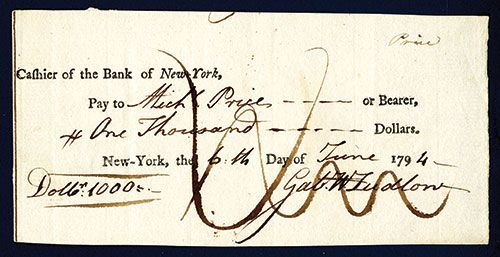 Price
Cashier of the Bank of New-York,
Pay to Mich.l Price or Bearer,
One Thousand Dollars.
New-York, the 6th Day of June 1794
Doll.rs 1000 Gab. W. Ludlow